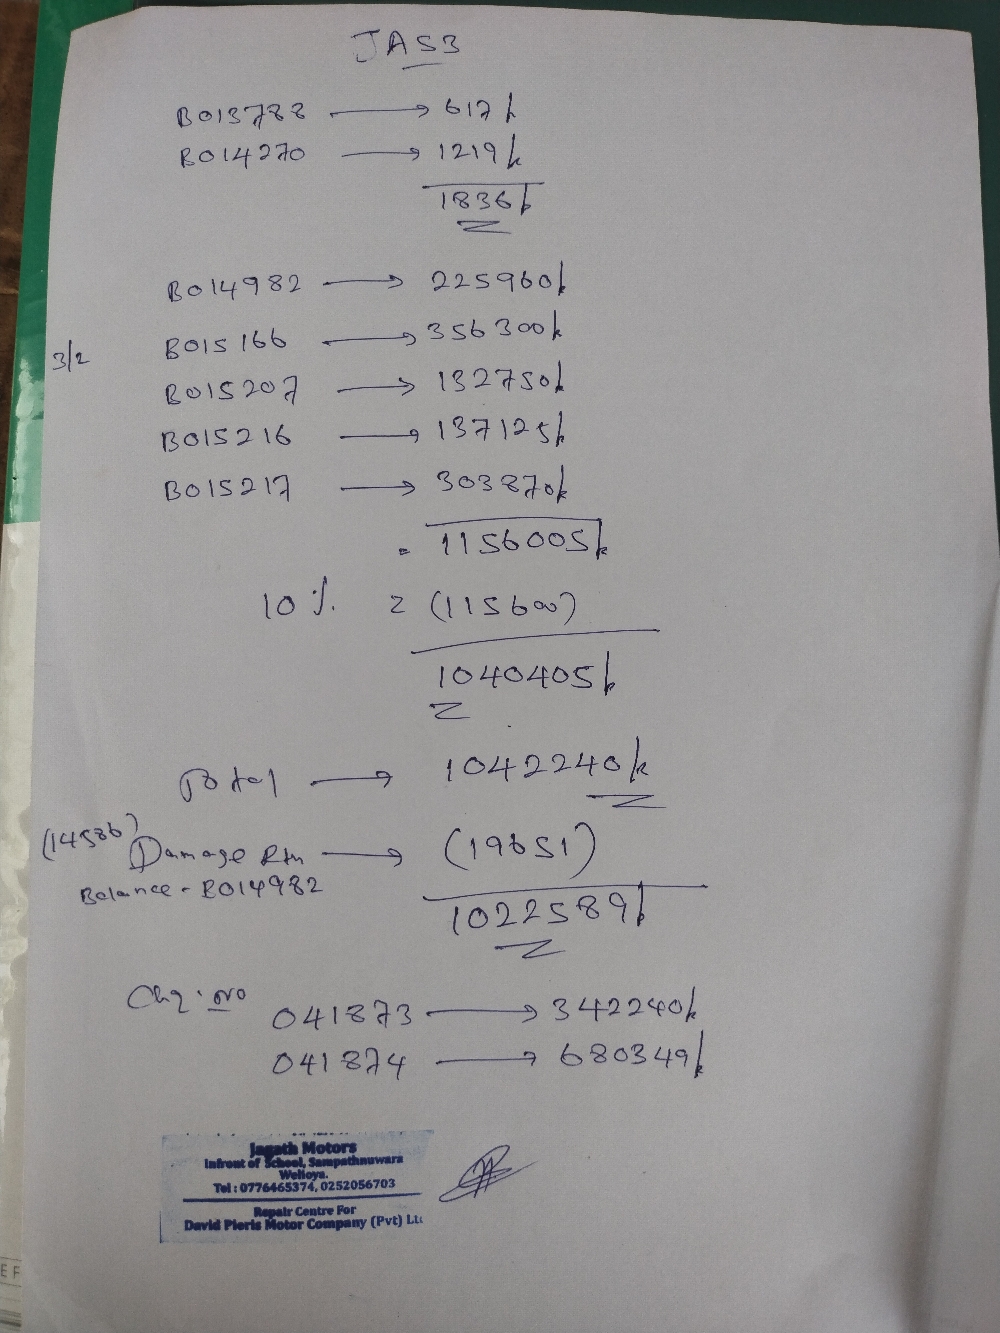 JAS3
B013788 → 617/-
B014270 → 1219/-
1836/-
B014982 → 225960/-
3/2 B015166 → 356300/-
B015207 → 132750/-
B015216 → 137125/-
B015217 → 303870/-
= 1156005/-
10% = (115600)
1040405/-
Total → 1042240/-
(14586) Damage Rtn → (19651)
Balance - B014982
1022589/-
Chq. No
041873 → 342240/-
041874 → 680349/-
Jagath Motors
Infront of School, Sampathnuwara
Welioya.
Tel : 0776465374, 0252056703
Repair Centre For
David Pieris Motor Company (Pvt) Ltd
EF